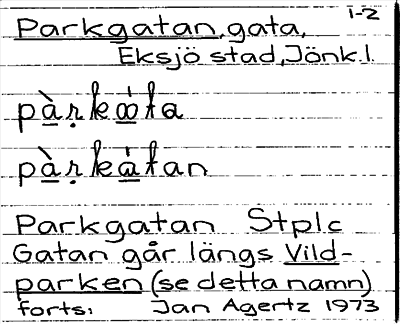 1-2
Parkgatan, gata,
Eksjö stad, Jönk.l.
Parkgatan Stplc
Gatan går längs Vild-
parken (se detta namn)
forts: Jan Agertz 1973